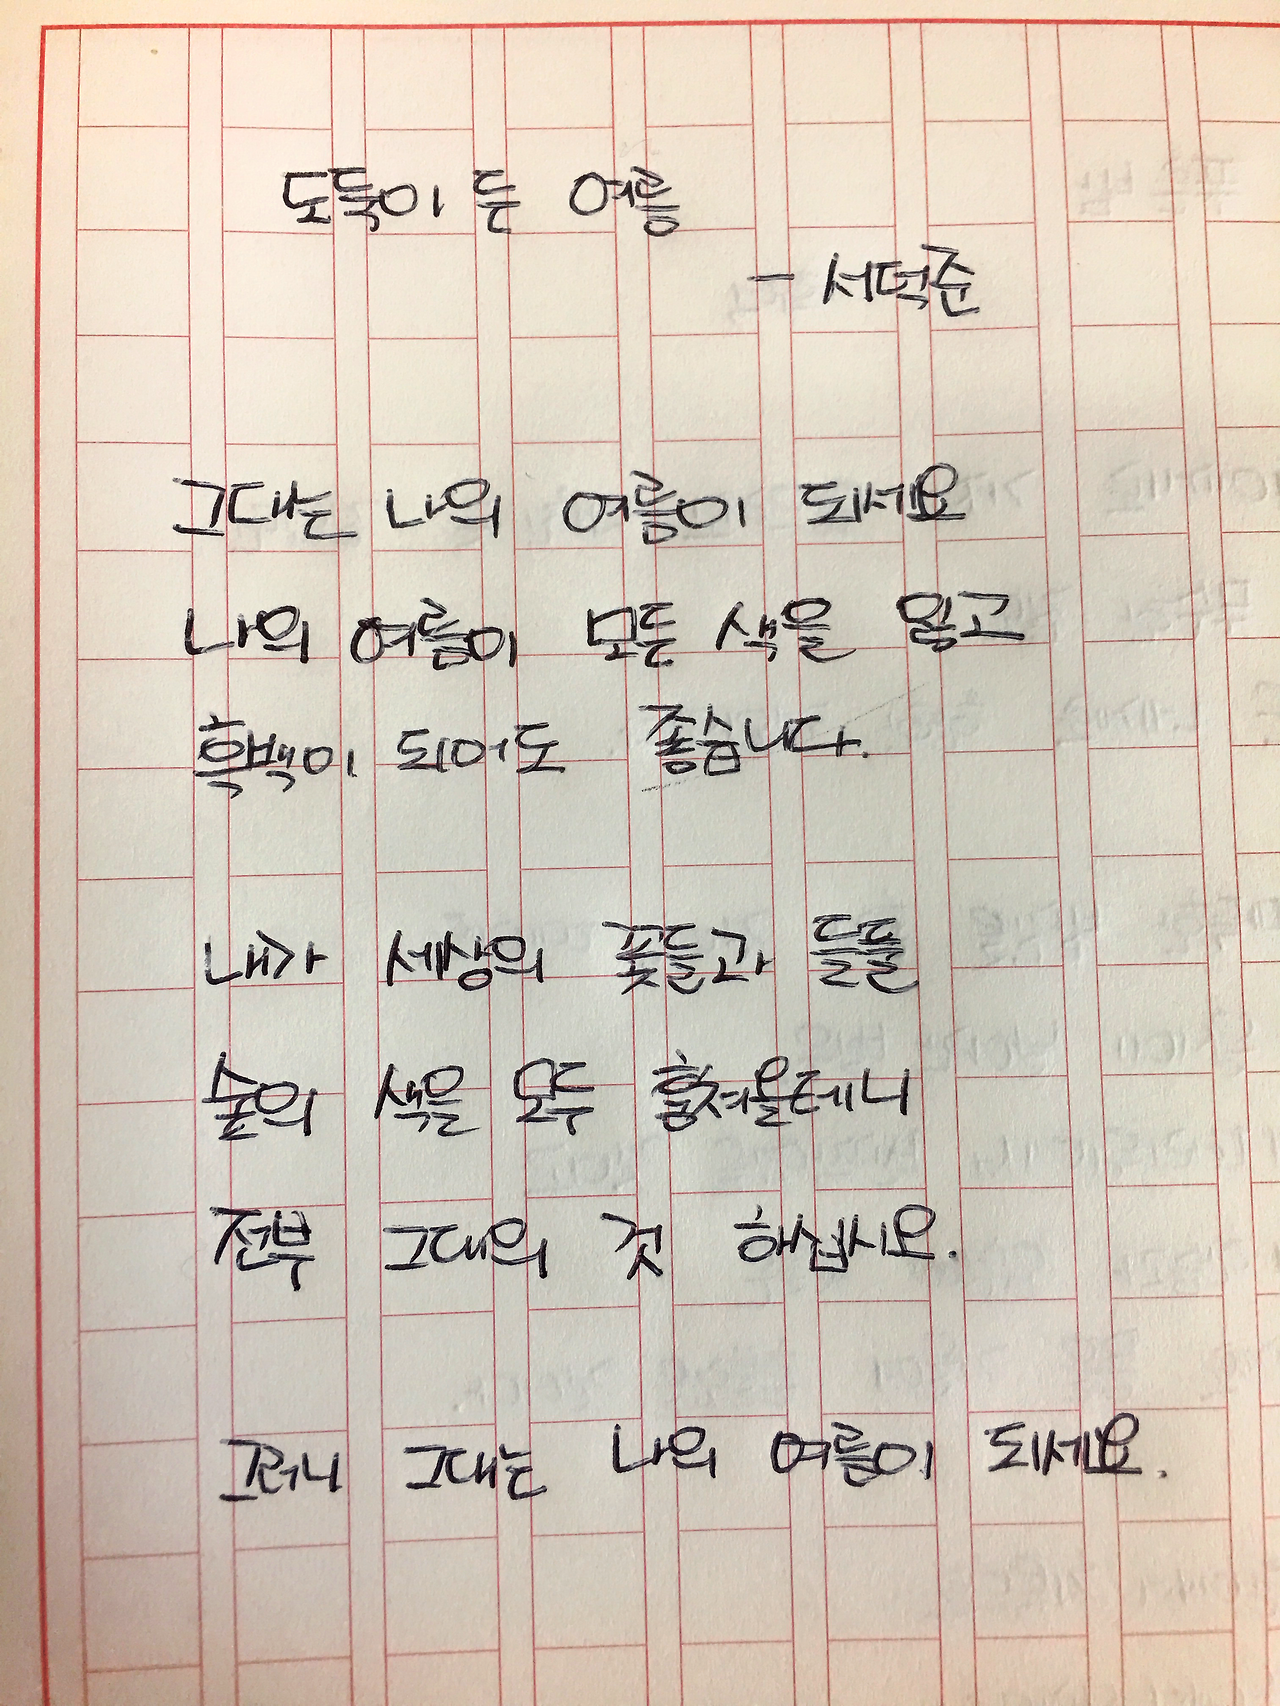 도둑이 든 여름
- 서덕준
그대는 나의 여름이 되세요
나의 여름이 모든 색을 잃고
흑백이 되어도 좋습니다.
내가 세상의 꽃들과 들풀
숲의 색을 모두 훔쳐올테니
전부 그대의 것 하십시오.
그러니 그대는 나의 여름이 되세요.